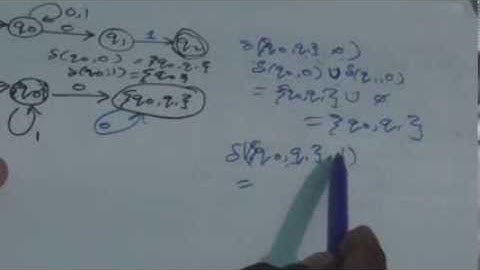 0,1
q₀ 0 q₁ 1 q₂
δ(q₀,0) = {q₀,q₁}
δ(q₀,1) = {q₀}
{q₀} 0 {q₀,q₁}
1 0
δ({q₀,q₁} 0)
δ(q₀,0) ∪ δ(q₁,0)
= {q₀,q₁} ∪ ∅
= {q₀,q₁}
δ({q₀,q₁}, 1)
=